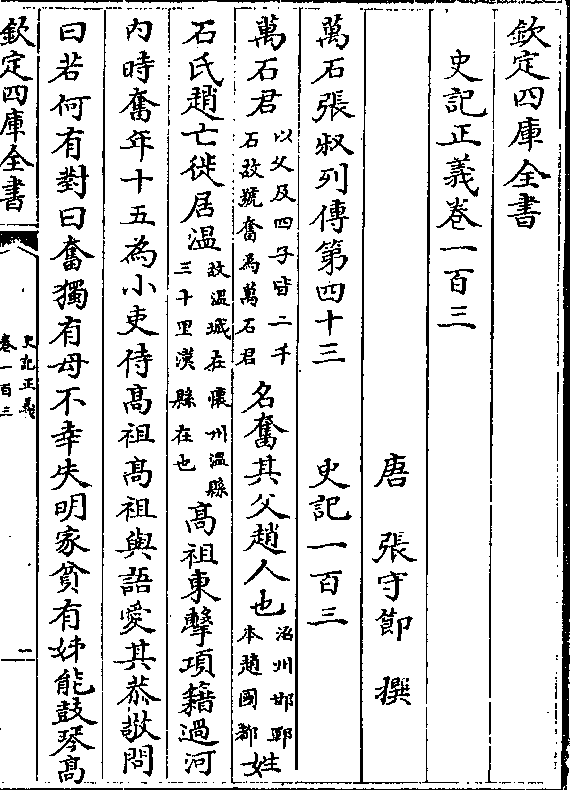 欽定四庫全書
史記正義卷一百三
唐 張守節 撰
萬石張叔列傳第四十三 史記一百三
萬石君以父及四子皆二千石故號奮為萬石君名奮其父趙人也洺州邯鄲本趙國都姓
石氏趙亡徙居溫故溫城在懷州溫縣三十里漢縣在也高祖東擊項籍過河
内時奮年十五為小吏侍高祖高祖與語愛其恭敬問
曰若何有對曰奮獨有母不幸失明家貧有姊能鼓琴高
欽定四庫全書
史記正義
卷一百三
一